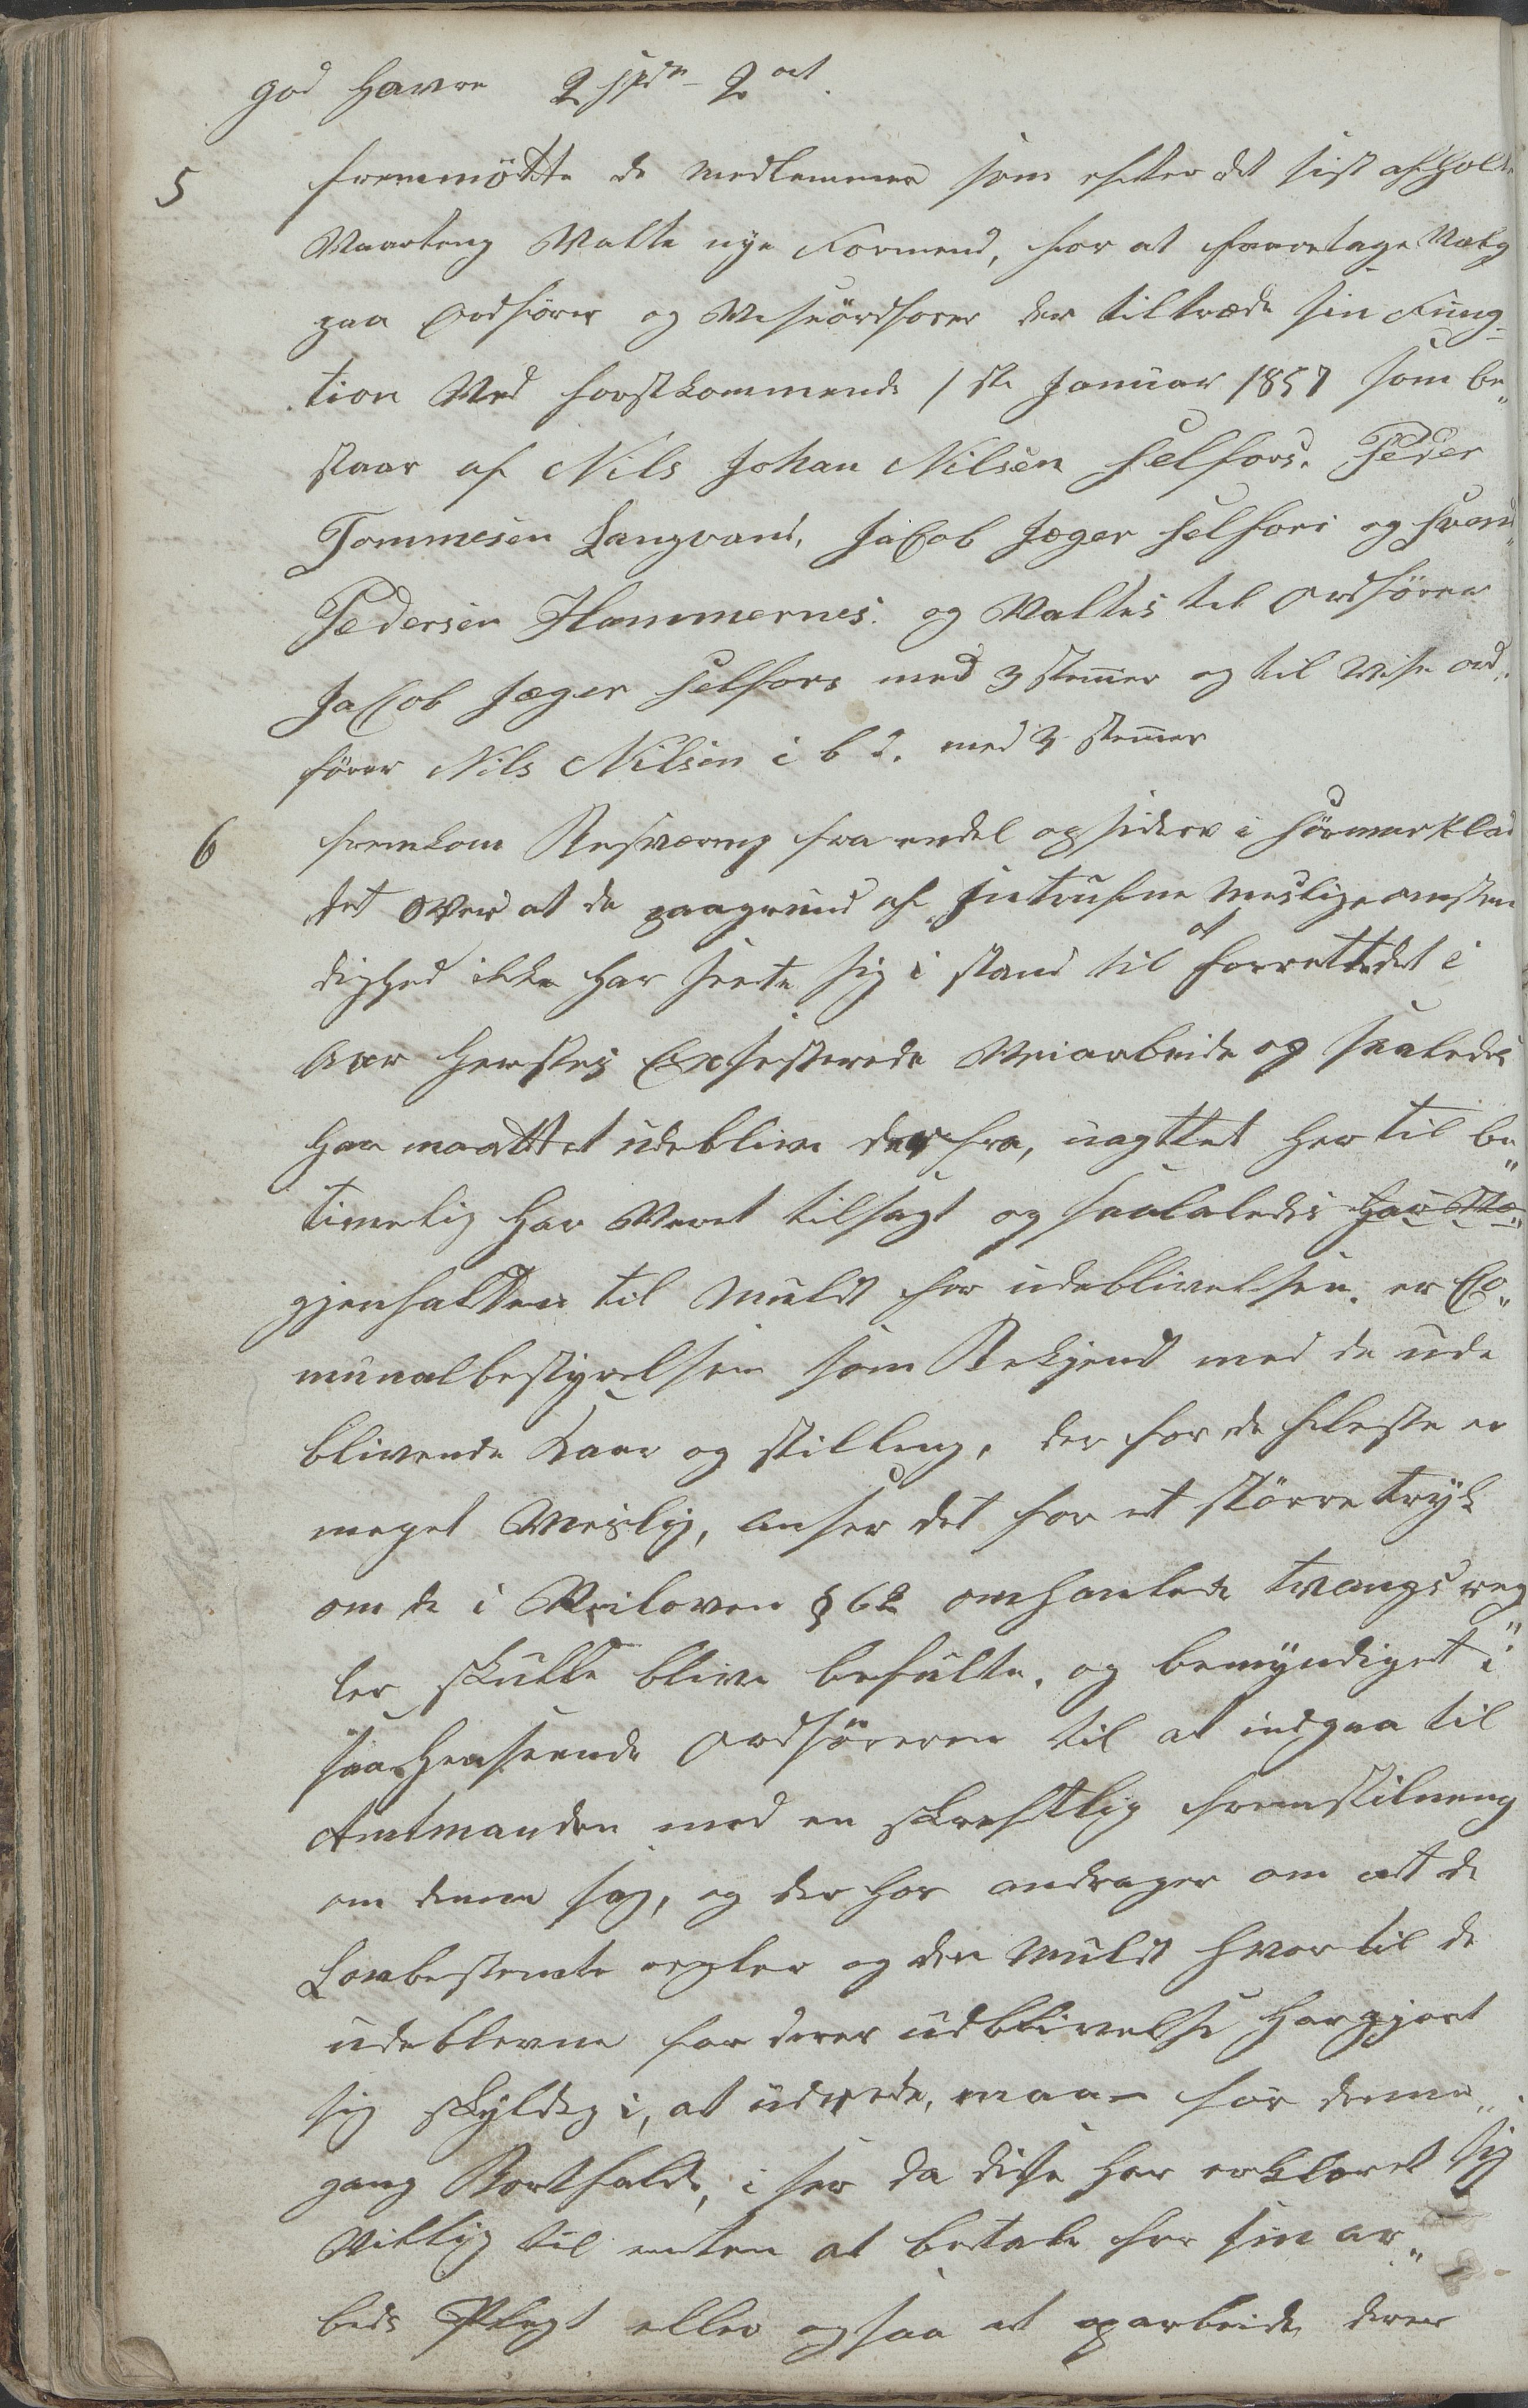 god Havre 2 Spd - 2 ort.
5 fremmötte de Medlemmer som efter det sist afholdte
Vaarting Valte nye Formend, for at foretage Valg
paa Ordfører og Viseördfører der tiltræde sin Fung-
tion Ved forstkommende 1ste Januar 1857 som be„
staar af Nils Johan Nilsen Selfors. Peder
Tommesen Langvand, Jacob Jæger Selfors og Svend
Pedersen Hammernes. og Valtes til Ordförer
Jacob Jæger Selfors med 3 stemer og til Vise ord„
fører Nils Nilsen i b d. med 3 stemer
6 fremkom Besværing fra endel opsidere i Sörmarklad
det over at de paagrund af indtrufne Meslige omsten
dighed ikke har seete sig i stand til at forrette det i
Aar herstes Exsesterede Veiarbeide og saaledes
har maattet udeblive derfra, uagttet her til be„
timelig har Veret tilsagt og saalaledes har
gjenfalden til Muldt for udeblivelsen. er Co„
munalbestyrelsen som Bekjendt med de ude
blivende Kaar og stilling, der for de fleste er
meget Meslig, anser det for et större tryk
om de i Veiloven § 62 omhanlede tvangsreg„
ler skulle blive befulte. og bemyndiget i
saa Henseende Ordföreren til at indgaa til
Amtmanden med en skreftlig fremstilning
om denne sag, og der for andrager om att de
Lovbestemte regler og den Muldt hvortil de
udeblevne for deres udblivelse har gjort
sig skyldig i, at udrede, maa for denne„
gang Bortfalde, i ser da disse har erkloret sig
Villig til enten at betale for sin ar„
beds Pligt eller ogsaa at oparbeide deres